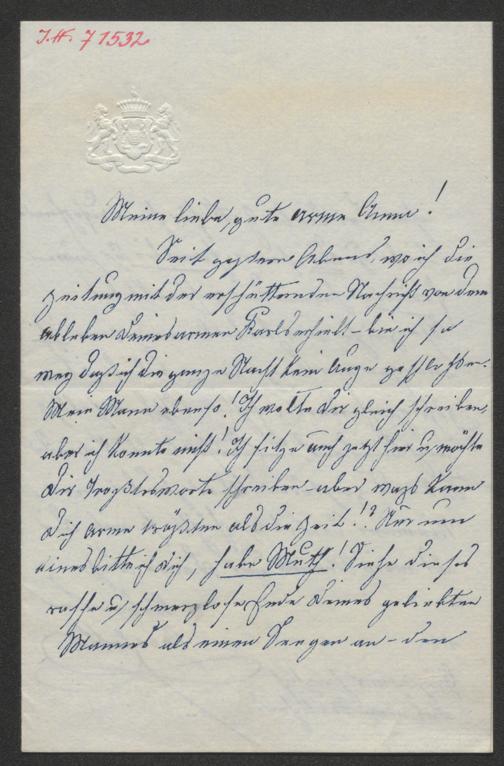 J.N. 71532
Meine liebe, gute arme Anna!
Seit gestern Abend, wo ich die
Zeitung mit der erschütternden Nachricht von dem
Ableben deines armen Karls erhielt – bin ich so
weg daß ich die ganze Nacht kein Auge geschlossen.
Mein Mann ebenso! Ich wollte dir gleich schreiben,
aber ich konnte nicht! Ich sitze auch jetzt hier u. möchte
dir Trostesworte schreiben – aber was kann
dich arme trösten als die Zeit!? Nur um
eines bitte ich dich, habe Muth! Siehe dieses
rasche u. schmerzlose Ende deines geliebten
Mannes als einen Seegen an – den